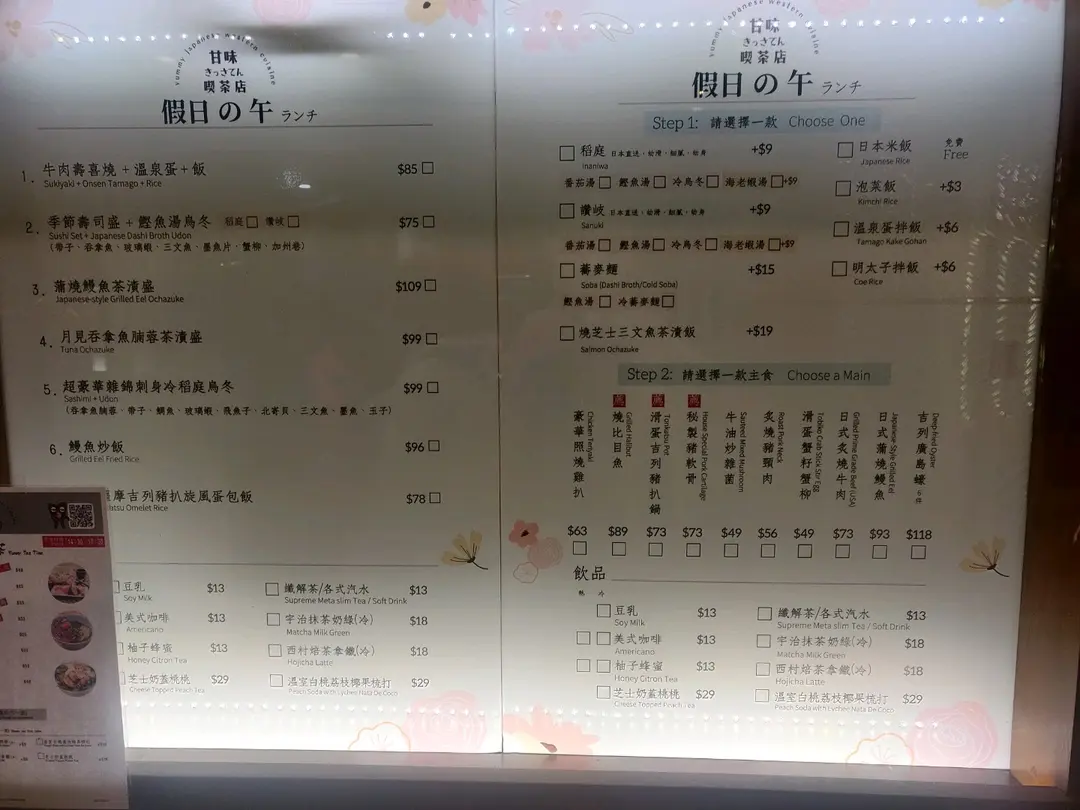 yummy Japanese western cuisine
甘味
きっさてん
喫茶店
假日の午 ランチ
1. 牛肉壽喜燒 + 溫泉蛋 + 飯 $85
Sukiyaki + Onsen Tamago + Rice
2. 季節壽司盛 + 鰹魚湯烏冬 稻庭 讚岐 $75
Sushi Set + Japanese Dashi Broth Udon
(帶子、吞拿魚、玻璃蝦、三文魚、墨魚片、蟹柳、加州卷)
3. 蒲燒鰻魚茶漬盛 $109
Japanese-style Grilled Eel Ochazuke
4. 月見吞拿魚腩蓉茶漬盛 $99
Tuna Ochazuke
5. 超豪華雜錦刺身冷稻庭烏冬 $99
Sashimi + Udon
(吞拿魚腩蓉、帶子、鯛魚、玻璃蝦、飛魚子、北寄貝、三文魚、墨魚、玉子)
6. 鰻魚炒飯 $96
Grilled Eel Fried Rice
摩吉列豬扒旋風蛋包飯 $78
Omelet Rice
豆乳 $13
Soy Milk
美式咖啡 $13
Americano
柚子蜂蜜 $13
Honey Citron Tea
芝士奶蓋桃桃 $29
Cheese Topped Peach Tea
纖解茶/各式汽水 $13
Supreme Meta slim Tea / Soft Drink
宇治抹茶奶綠(冷) $18
Matcha Milk Green
西村焙茶拿鐵(冷) $18
Hojicha Latte
溫室白桃荔枝椰果梳打 $29
Peach Soda with Lychee Nata De Coco
yummy Japanese western cuisine
甘味
きっさてん
喫茶店
假日の午 ランチ
Step 1: 請選擇一款 Choose One
稻庭 日本直送，幼滑，細膩，幼身 +$9
Inaniwa
番茄湯 鰹魚湯 冷烏冬 海老蝦湯 +$9
讚岐 +$9
Sanuki
番茄湯 鰹魚湯 冷烏冬 海老蝦湯 +$9
蕎麥麵 +$15
Soba (Dashi Broth/Cold Soba)
鰹魚湯 冷蕎麥麵
燒芝士三文魚茶漬飯 +$19
Salmon Ochazuke
日本米飯 免費
Japanese Rice Free
泡菜飯 +$3
Kimchi Rice
溫泉蛋拌飯 +$6
Tamago Kake Gohan
明太子拌飯 +$6
Coe Rice
Step 2: 請選擇一款主食 Choose a Main
豪華照燒雞扒
Chicken Teriyaki
$63
燒比目魚
Grilled Halibut
$89
滑蛋吉列豬扒鍋
Tonkadou Pot
$73
秘製豬軟骨
House Special Pork Cartilage
$73
牛油炒雜菌
Sauteed Mixed Mushroom
$49
炙燒豬頸肉
Roast Pork Neck
$56
滑蛋蟹籽蟹柳
Tobiko Crab Stick Stir Egg
$49
日式炙燒牛肉
Grilled Prime Grade Beef (USA)
$73
日式蒲燒鰻魚
Japanese Style Grilled Eel
$93
吉列廣島蠔
Deep-fried Oyster
$118
飲品
熱 冷
豆乳 $13
Soy Milk
美式咖啡 $13
Americano
柚子蜂蜜 $13
Honey Citron Tea
芝士奶蓋桃桃 $29
Cheese Topped Peach Tea
纖解茶/各式汽水 $13
Supreme Meta slim Tea / Soft Drink
宇治抹茶奶綠(冷) $18
Matcha Milk Green
西村焙茶拿鐵(冷) $18
Hojicha Latte
溫室白桃荔枝椰果梳打 $29
Peach Soda with Lychee Nata De Coco